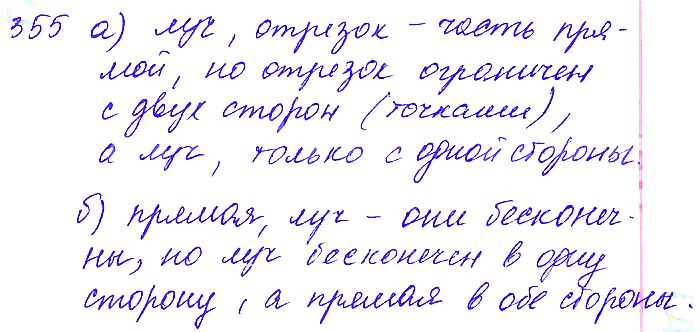 355 а) луч, отрезок – часть пря-
мой, но отрезок ограничен
с двух сторон (точками),
а луч, только с одной стороны.
б) прямая, луч – они бесконеч-
ны, но луч бесконечен в одну
сторону, а прямая в обе стороны.